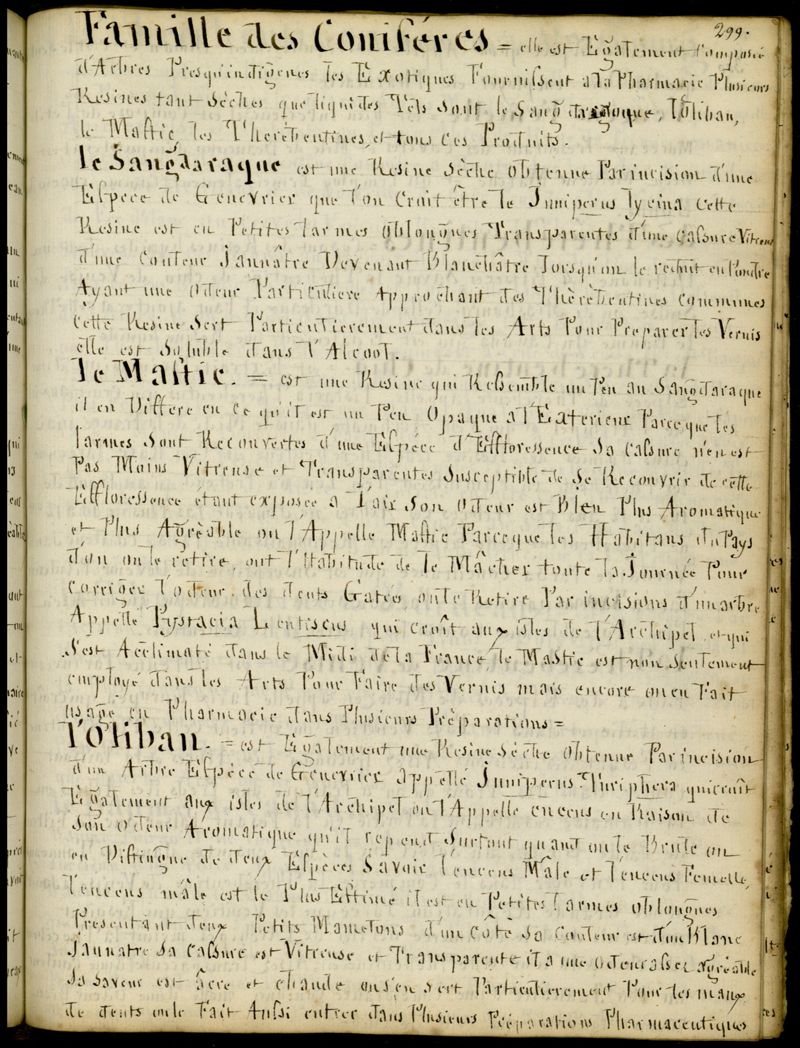 299.
Famille des Coniféres = elle est Egalement Composée
d'Arbres Presqu'indigenes les Exotiques Fournissent à la Pharmacie Plusieurs
Résines tant Sèches que liquides Tels Sont le Sangdaraque, l'oliban,
le Mastic, les Thérébentines, et tous ces Produits.
le Sangdaraque est une Résine Sèche obtenue Par incision d'une
Espèce de Genevrier que l'on Croit être le Juniperus lycina Cette
Résine est en Petites larmes oblongues Transparentes d'une Cassure Vitreuse
d'une Couleur Jaunâtre Devenant Blanchâtre lorsqu'on le reduit en Poudre
Ayant une odeur Particuliere Approchant des Thèrèbentines Communes
Cette Résine Sert Particulierement dans les Arts Pour Preparer les Vernis
elle est Soluble dans l'Alcool.
le Mastic. = est une Résine qui Ressemble un Peu au Sangdaraque
il en Differe en ce qu'il est un Peu Opaque a l'Exterieur Parceque les
larmes Sont Recouvertes d'une Espèce d'Effloressence Sa Cassure n'en est
Pas Moins Vitreuse et Transparentes Susceptible de Se Recouvrir de cette
Effloressence etant exposée a l'air Son odeur est Bien Plus Aromatique
et Plus Agréable on l'Appelle Mastic Parceque les Habitans du Pays
d'ou on le retire, ont l'Habitude de le Mâcher toute la Journée Pour
Corriger l'odeur des dents Gatées on le Retire Par incisions d'un arbre
Appelle Pystacia Lentiscus qui croît aux isles de l'Archipel et qui
S'est Acclimaté dans le Midi de la France, le Mastic est non Seulement
employé dans les Arts Pour Faire des Vernis mais encore on en Fait
usage en Pharmacie dans Plusieurs Préparations =
l'oliban. = est Egalement une Résine Sèche obtenue Par incision
d'un Arbre Espèce de Genevrier appellé Juniperus Thuriphera qui croît
Egalement aux isles de l'Archipel on l'Appelle encens en Raison de
Son odeur Aromatique qu'il repend Surtout quand on le Brule on
en Distingue de deux Espèces Savoir l'encens Mâle et l'encens Femelle,
l'encens mâle est le Plus Estimé il est en Petites larmes oblongues
Presentant deux Petits Mamelons d'un côté Sa Couleur est d'un Blanc
Jaunatre Sa Cassure est Vitreuse et Transparente il a une odeur assez agréable
Sa Saveur est âcre et chaude on s'en Sert Particulierement Pour les maux
de dents on le Fait Aussi entrer dans Plusieurs Préparations Pharmaceutiques